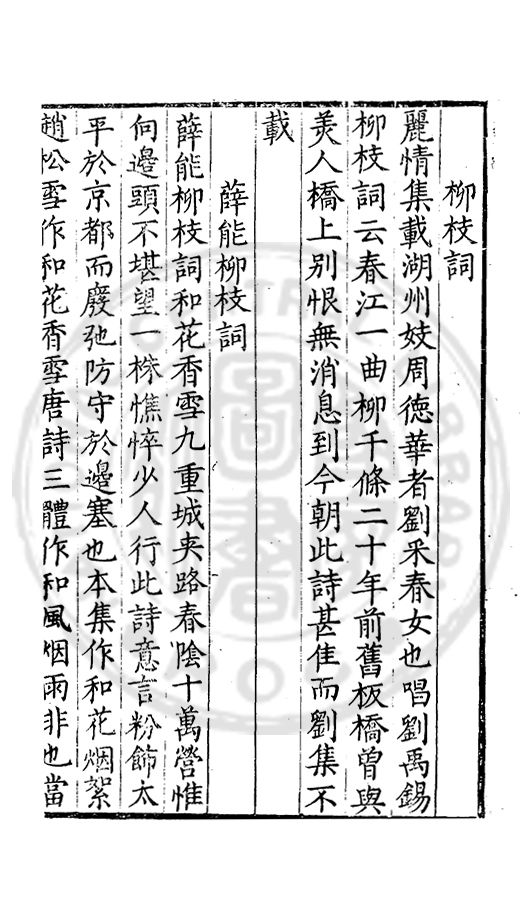 柳枝詞
麗情集載湖州妓周德華者劉采春女也唱劉禹錫
柳枝詞云春江一曲柳千條二十年前舊板橋曾與
美人橋上別恨無消息到今朝此詩甚佳而劉集不
載
薛能柳枝詞
薛能柳枝詞和花香雪九重城夾路春陰十萬營惟
向邉頭不堪望一株憔悴少人行此詩意言粉飾太
平於京都而廢弛防守於邉塞也本集作和花烟絮
趙松雪作和花香雪唐詩三體作和風烟雨非也當